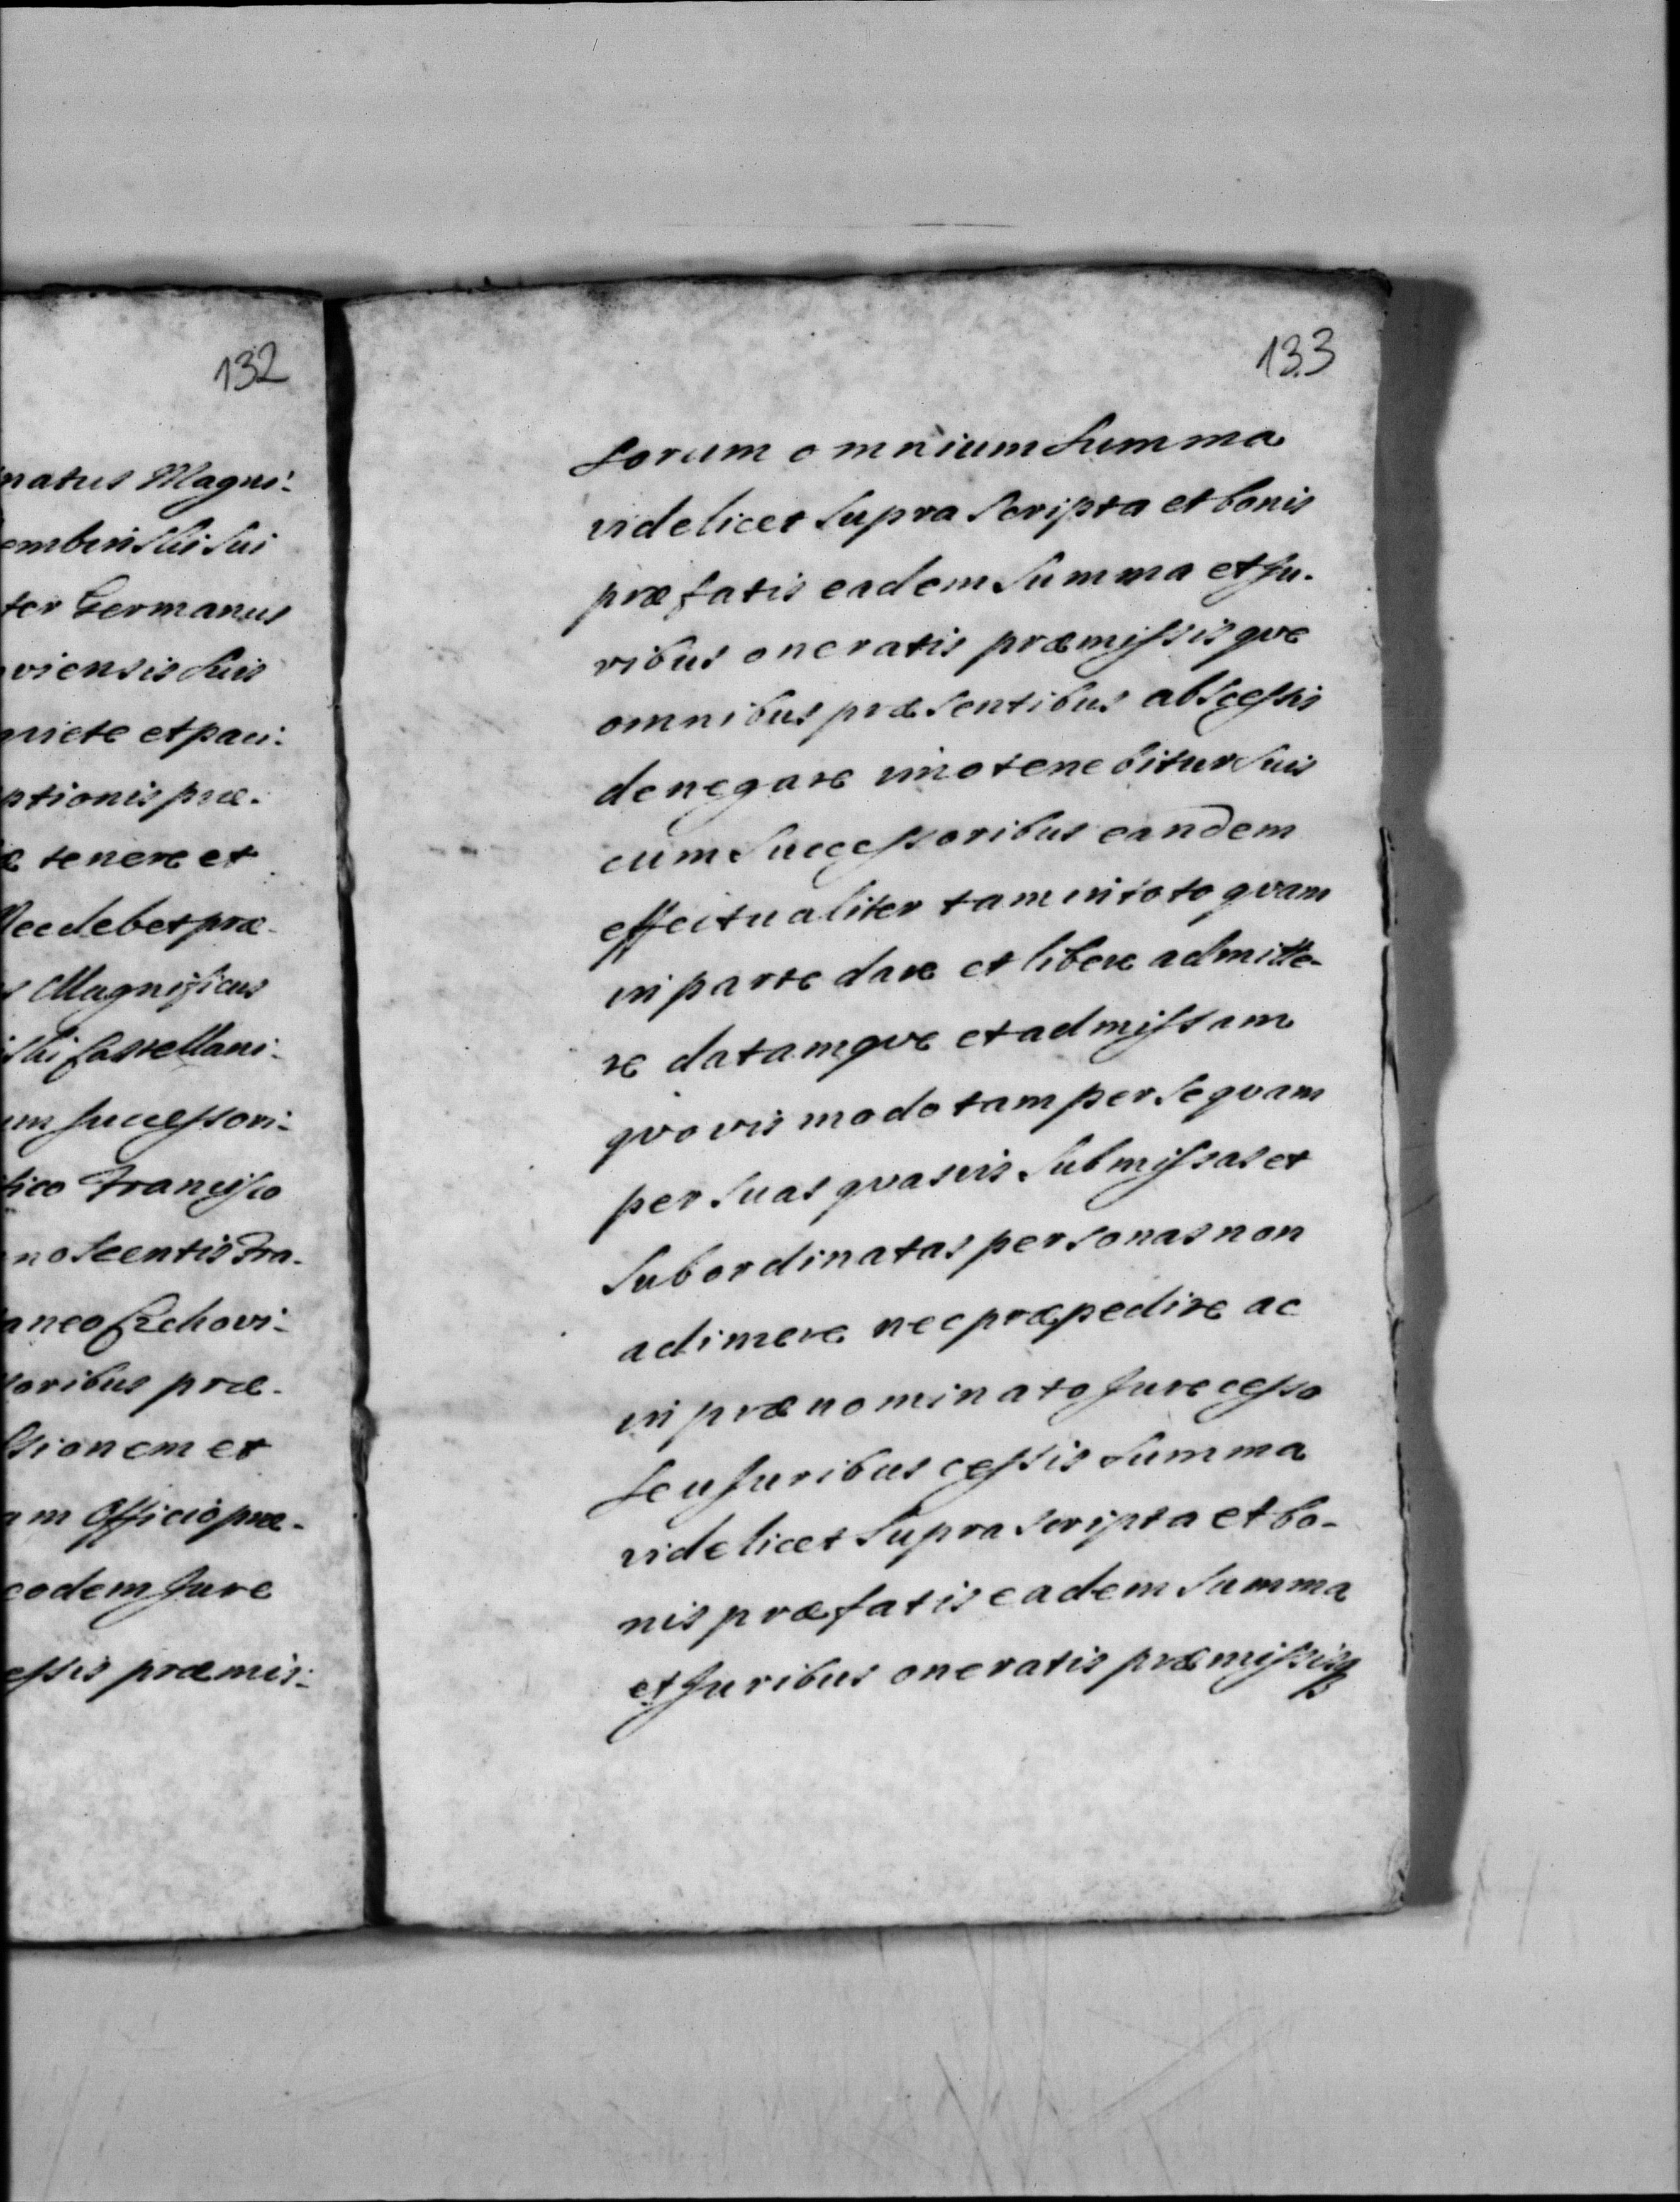 132
natus Magni-
embinski sui
ter Germanus
viensis suis
quiete et paci-
ptionis præ-
æ tenere et
Nec debet præ-
Magnificus
ski Castellani-
um successori-
fico Francisco
noscentis Fra-
aneo Czchovi-
soribus præ-
ssionem et
am Officio præ-
eodem Jure
essis præmis-
133
sorum omnium summa
videlicet supra scripta et bonis
præfatis eadem summa et Ju-
ribus oneratis præmissisque
omnibus præsentibus abscessis
denegare imo tenebitur suis
cum successoribus eandem
effectualiter tam in toto quam
in parte dare et libere admitte-
re datamque et admissam
quovis modo tam per se quam
per suas quasvis submissas et
subordinatas personas non
adimere nec præpedire ac
in prænominato Jure cesso
seu Juribus cessis summa
videlicet supra scripta et bo-
nis præfatis eadem summa
et Juribus oneratis præmissisq3